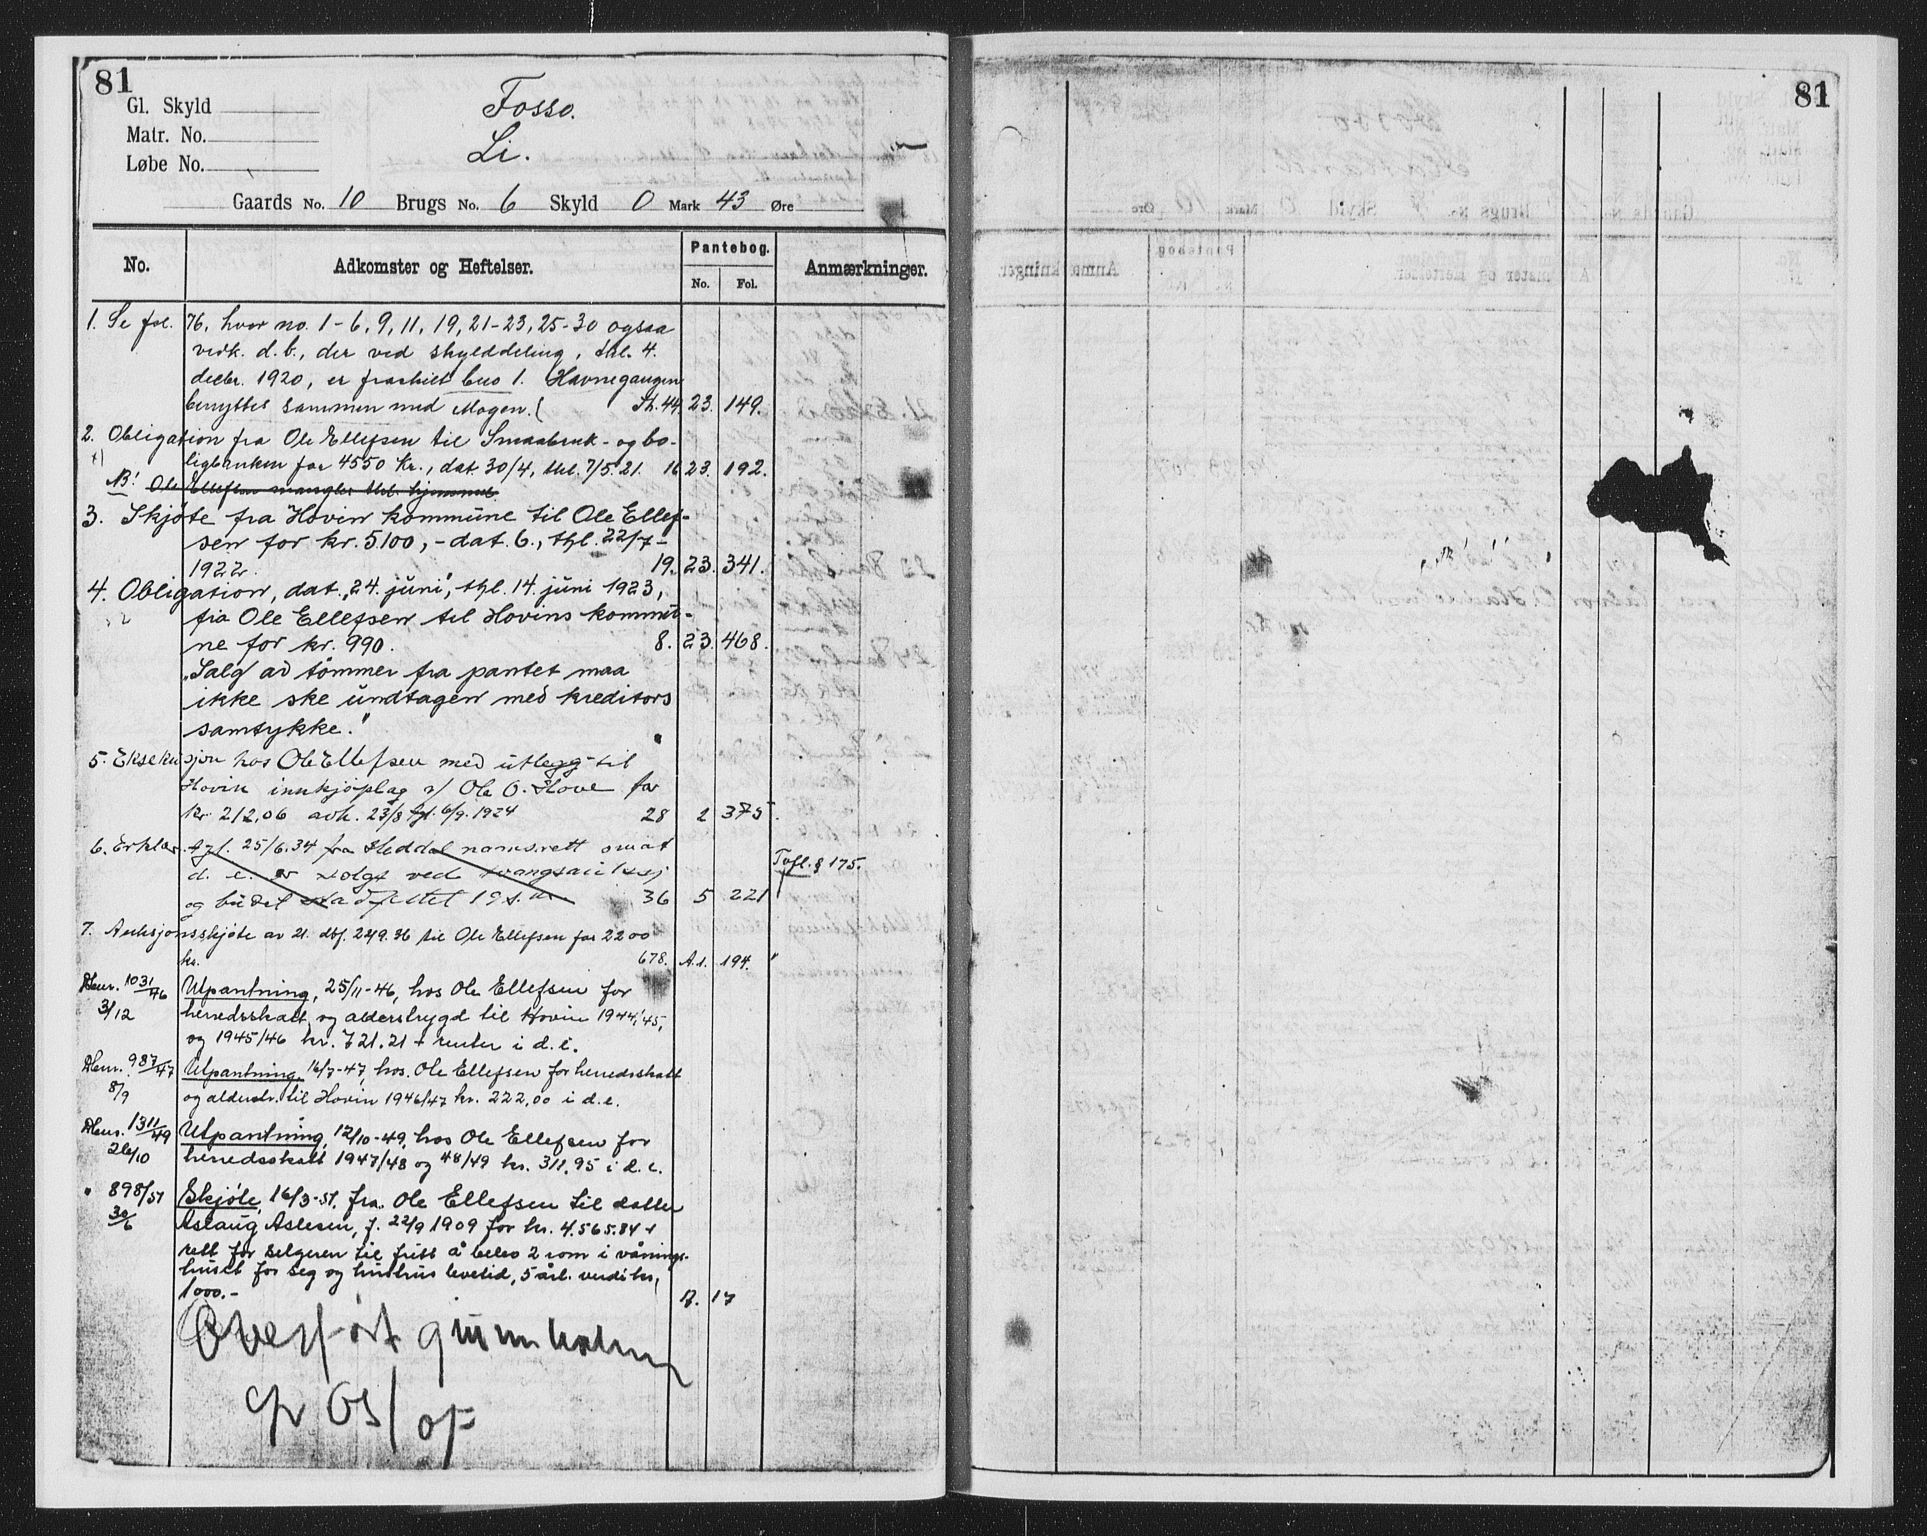 81
Gl. Skyld
Matr. No.
Løbe No.
Fosso.
Li.
Gaards No. 10 Brugs No. 6 Skyld 0 Mark 43 Øre
No. Adkomster og Heftelser. Pantebog. No. Fol. Anmærkninger.
1. Se fol. 76, hvor no. 1-6, 9, 11, 19, 21-23, 25-30 ogsaa
vedk. d.b., der ved skylddeling, thl. 4.
decbr. 1920, er fraskilt bno 1. Havnegangen
benyttes sammen med Mogen. 44 23. 149.
2. Obligation fra Ole Ellefsen til Smaabruk- og bo-
ligbanken for 4550 kr., dat. 30/4, thl. 7/5.21. 16 23. 192.
NB! Ole Ellefsen mangler thl. hjemmel.
3. Skjøte fra Hovin kommune til Ole Ellef-
sen for kr. 5100,- dat. 6., thl. 22/7-
1922. 19. 23. 341.
4. Obligation, dat. „24. juni", thl. 14. juni 1923,
fra Ole Ellefsen til Hovins kommu-
ne for kr. 990. 8. 23. 468.
„Salg av tømmer fra pantet maa
ikke ske undtagen med kreditors
samtykke."
5. Eksekusjon hos Ole Ellefsen med utlegg til
Hovin innkjøpslag v/ Ole O. Hove for
kr. 212,06 avh. 23/8 tgl. 6/9. 1924 28 2 375.
6. Erklær. tgl. 25/6.34 fra Heddal namsrett om at
d. e. er solgt ved tvangsauksj
og budet stadfestet 19 36 5 221 Tvfl. § 175.
7. Auksjonsskjøte av 21. dbf. 24.9.36 til Ole Ellefsen for 2200
kr. 678. A.1. 194. "
Denr. 1031/46 Utpantning, 25/11-46, hos Ole Ellefsen for
3/12 herredsskatt og alderstrygd til Hovin 1944/45,
og 1945/46 kr. 721.21 + renter i d.e.
Denr. 987/47 Utpantning, 16/7-47, hos Ole Ellefsen for herredsskatt
8/9 og alderstr. til Hovin 1946/47 kr. 222,00 i d.e.
Denr. 1311/49 Utpantning, 12/10-49, hos Ole Ellefsen for
26/10 herredsskatt 1947/48 og 48/49 kr. 311,95 i d.e.
" 898/51 Skjøte, 16/3-51, fra Ole Ellefsen til datter
30/6 Aslaug Aslesen, f. 22/9 1909 for kr. 4.565.84 +
rett for selgeren til fritt å bebo 2 rom i vånings-
huset for seg og hustrus levetid, 5 årl. verdi kr.
1000.- 17
Overført
81